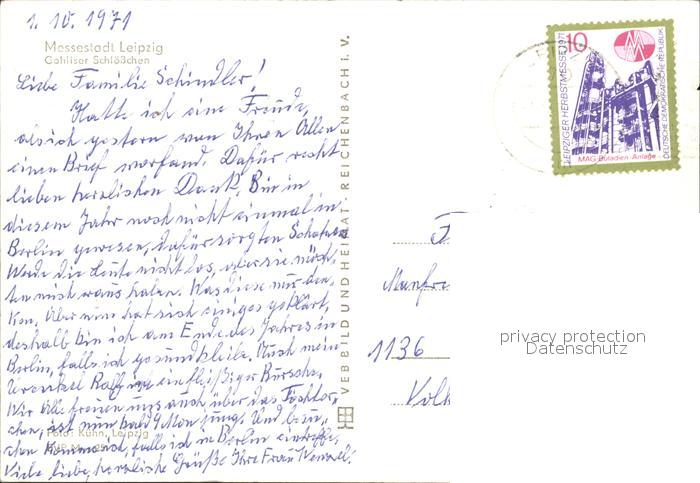 1.10.1971
Messestadt Leipzig
Gohliser Schlößchen
Liebe Familie Schindler!
Hatte ich eine Freude,
als ich gestern von Ihnen Allen
einen Brief vorfand. Dafür recht
lieben herzlichen Dank. Bin in
diesem Jahr noch nicht einmal in
Berlin gewesen, dafür sorgten
Werde die Leute nicht los, aber sie möch-
ten mich raus haben. Was diese nur den-
ken. Aber nun hat sich einiges geklärt,
deshalb bin ich am Ende des Jahres in
Berlin, falls ich gesund bleibe. Auch mein
Urenkel Ralf ist ein fleißiger Bursche.
Wir alle freuen uns auch über das Töchter-
chen, ist nun bald 9 Mon. jung. Und besu-
chen komme ich, falls ich in Berlin eintreffe.
Viele liebe, herzliche Grüße Ihre Frau
Foto: Kühn, Leipzig
VEB BILD UND HEIMAT REICHENBACH i. V.
10
LEIPZIGER HERBSTMESSE 1971
DEUTSCHE DEMOKRATISCHE REPUBLIK
MAG-Butadien-Anlage
F
Manfre
1136
Volk
privacy protection
Datenschutz